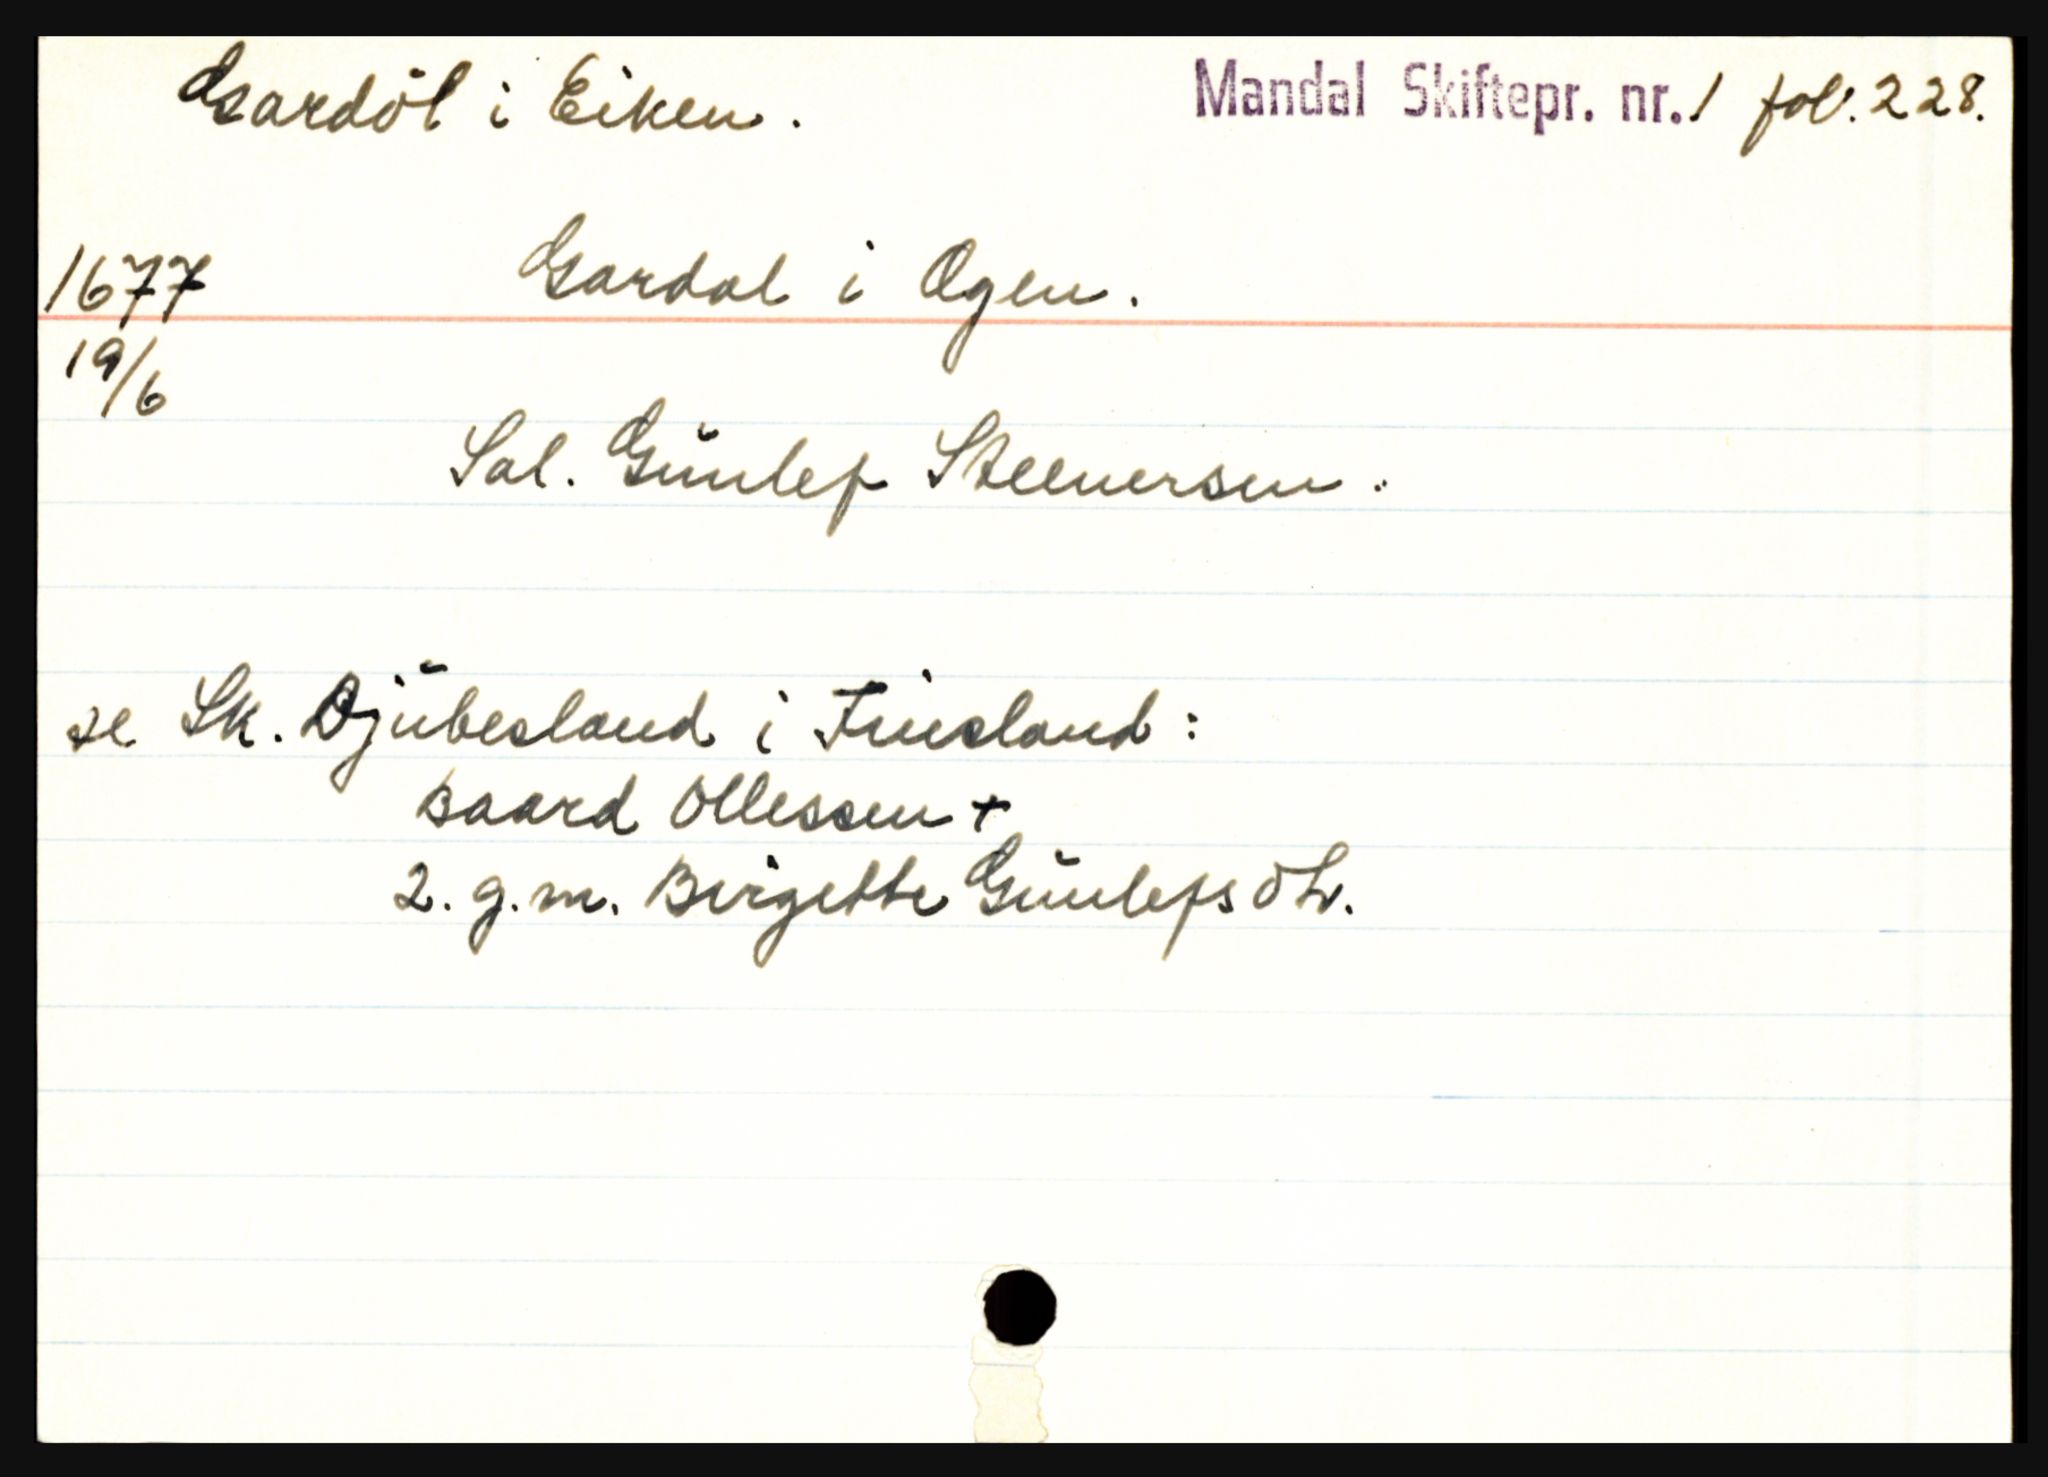 Gardöl i Eiken.
Mandal Skiftepr. nr. 1 fol. 228.
1677
Gardal i Ogen.
19/6
Sal. Gŭnlef Steenersen.
se Sk. Djŭbesland i Finsland:
Baard Ollessen +
2. g.m. Birgette Gŭnlefsdtr.